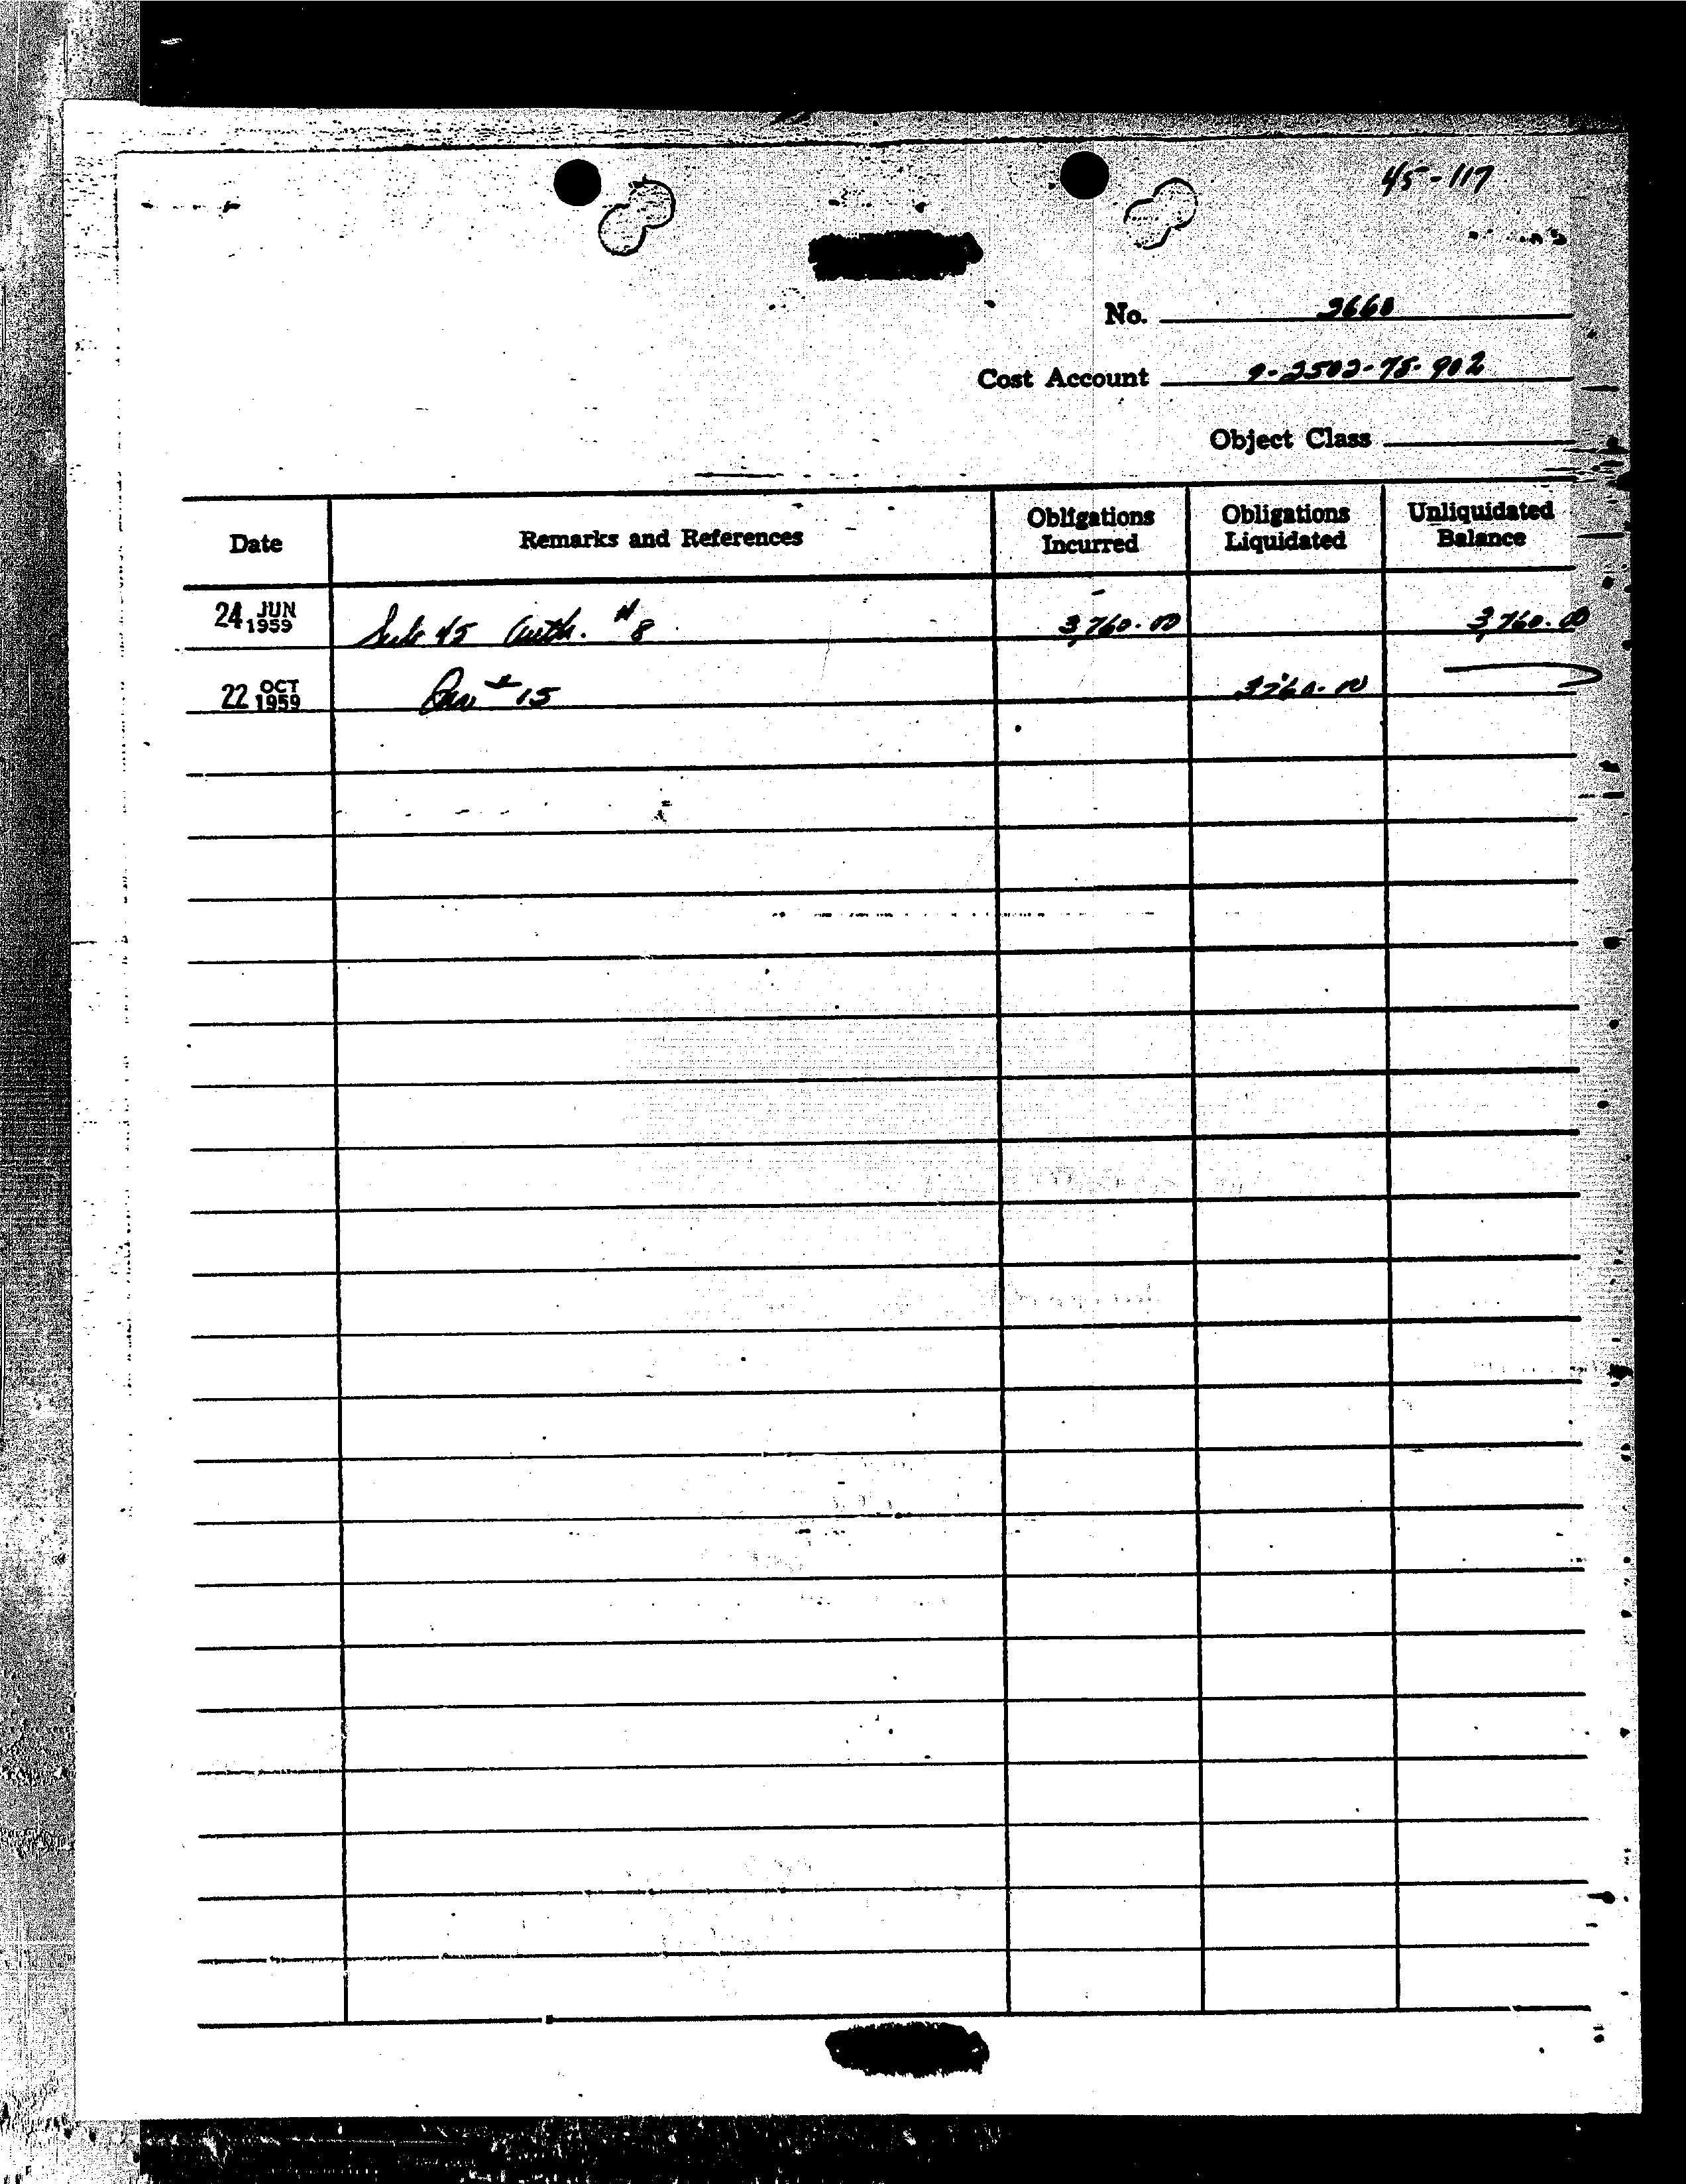 45-117
No. 3660
Cost Account 9-2502-75-902
Object Class
Date Remarks and References Obligations Incurred Obligations Liquidated Unliquidated Balance
24 JUN 1959 Sub 45 Auth. #8 3,760.00 3,760.00
22 OCT 1959 #15 3760.00